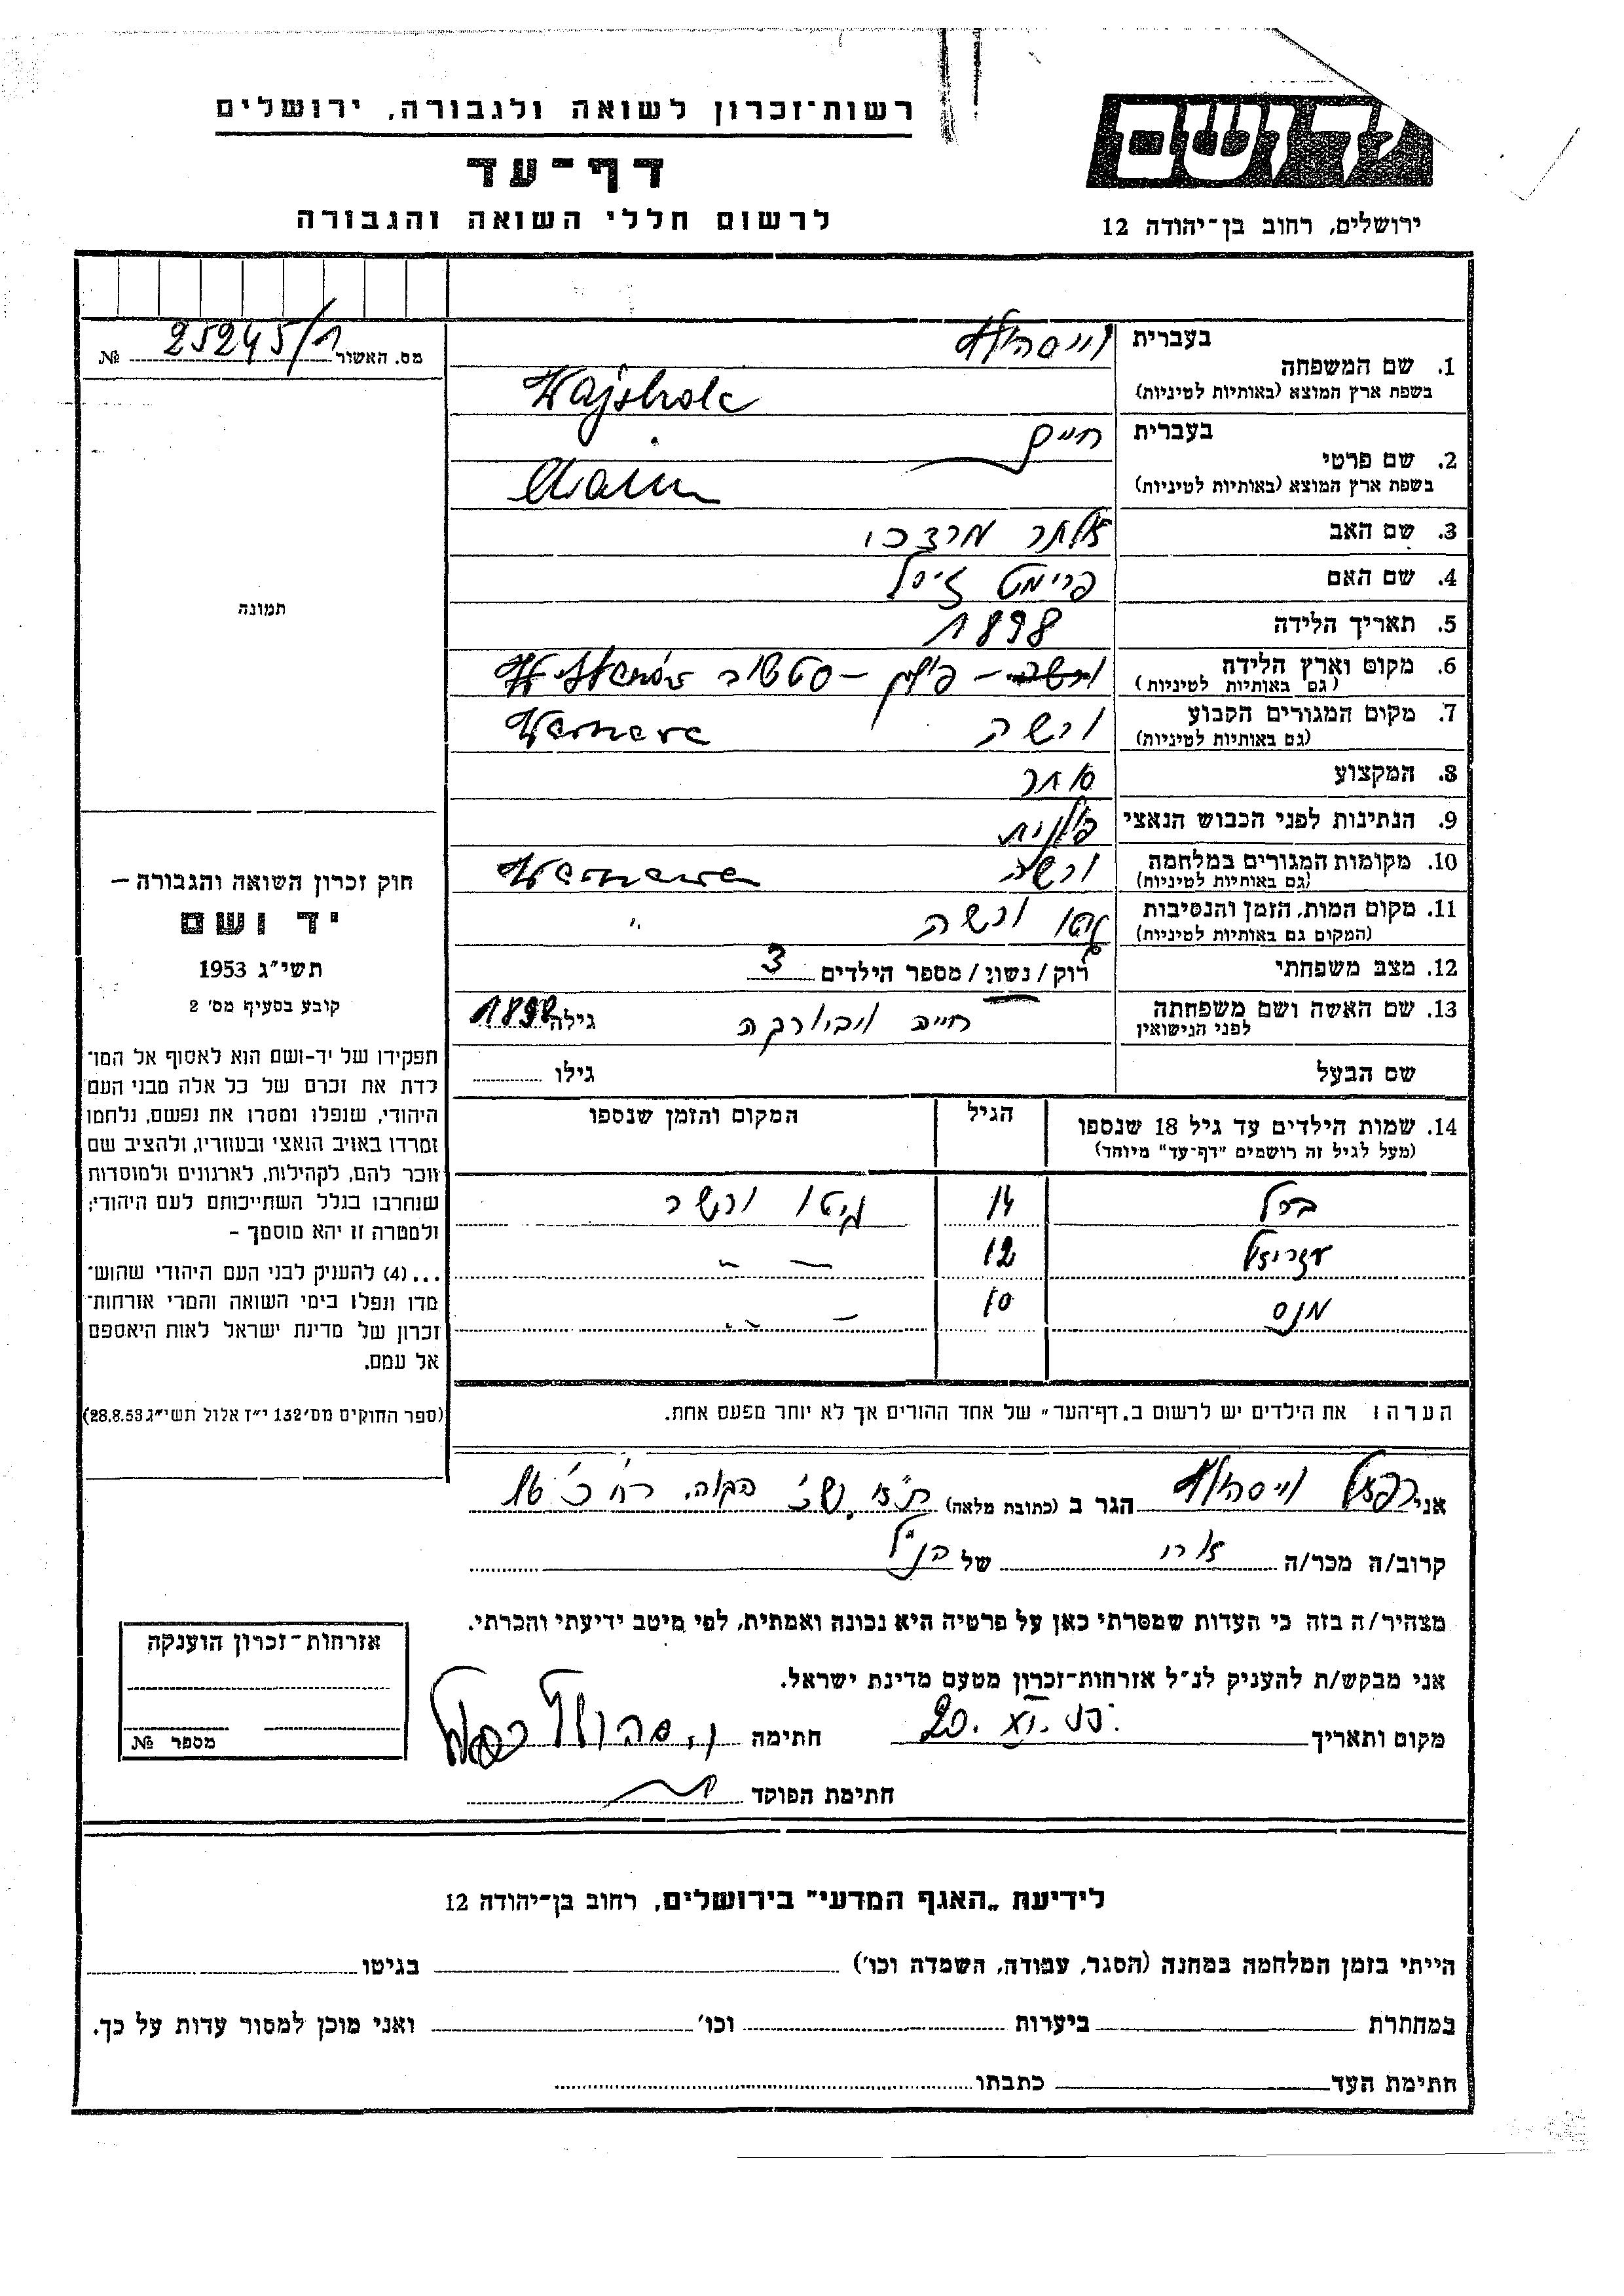 רשות־זכרון לשואה ולגבורה, ירושלים
דף־עד
לרשום חללי השואה והגבורה
יד ושם
ירושלים, רחוב בן־יהודה 12
מס. האשור 25245/1 №
1. שם המשפחה
בעברית
בשפת ארץ המוצא (באותיות לטיניות)
2. שם פרטי
בעברית חיים
בשפת ארץ המוצא (באותיות לטיניות) Chaim
3. שם האב אלתר מרדכי
4. שם האם
5. תאריך הלידה 1898
6. מקום וארץ הלידה
(גם באותיות לטיניות)
7. מקום המגורים הקבוע ורשה
(גם באותיות לטיניות)
8. המקצוע סוחר
9. הנתינות לפני הכבוש הנאצי פולנית
10. מקומות המגורים במלחמה ורשה
(גם באותיות לטיניות)
11. מקום המות, הזמן והנסיבות גיטו ורשה
(המקום גם באותיות לטיניות)
12. מצב משפחתי רוק / נשוי / מספר הילדים 3
13. שם האשה ושם משפחתה חיה גילה 1898
לפני הנישואין
שם הבעל גילו
14. שמות הילדים עד גיל 18 שנספו הגיל המקום והזמן שנספו
(מעל לגיל זה רושמים "דף־עד" מיוחד)
14 גיטו ורשה
עזריאל 12 — " —
10 — " —
הערה: את הילדים יש לרשום ב"דף־העד" של אחד ההורים אך לא יותר מפעם אחת.
תמונה
חוק זכרון השואה והגבורה —
יד ושם
תשי"ג 1953
קובע בסעיף מס' 2
תפקידו של יד-ושם הוא לאסוף אל המו־
לדת את זכרם של כל אלה מבני העם
היהודי, שנפלו ומסרו את נפשם, נלחמו
ומרדו באויב הנאצי ובעוזריו, ולהציב שם
וזכר להם, לקהילות, לארגונים ולמוסדות
שנחרבו בגלל השתייכותם לעם היהודי;
ולמטרה זו יהא מוסמך –
...(4) להעניק לבני העם היהודי שהוש־
מדו ונפלו בימי השואה והמרי אזרחות־
זכרון של מדינת ישראל לאות היאספם
אל עמם.
(ספר החוקים מס' 132 י"ז אלול תשי"ג 28.8.53)
אני רפאל הגר ב (כתובת מלאה)
קרוב/ה מכר/ה אח של הנ"ל
מצהיר/ה בזה כי העדות שמסרתי כאן על פרטיה היא נכונה ואמתית, לפי מיטב ידיעתי והכרתי.
אני מבקש/ת להעניק לנ"ל אזרחות-זכרון מטעם מדינת ישראל.
מקום ותאריך חתימה
חתימת הפוקד
אזרחות־זכרון הוענקה
מספר №
לידיעת „האגף המדעי" בירושלים, רחוב בן־יהודה 12
הייתי בזמן המלחמה במחנה (הסגר, עבודה, השמדה וכו') בגיטו
במחתרת ביערות וכו' ואני מוכן למסור עדות על כך.
חתימת העד כתבתו